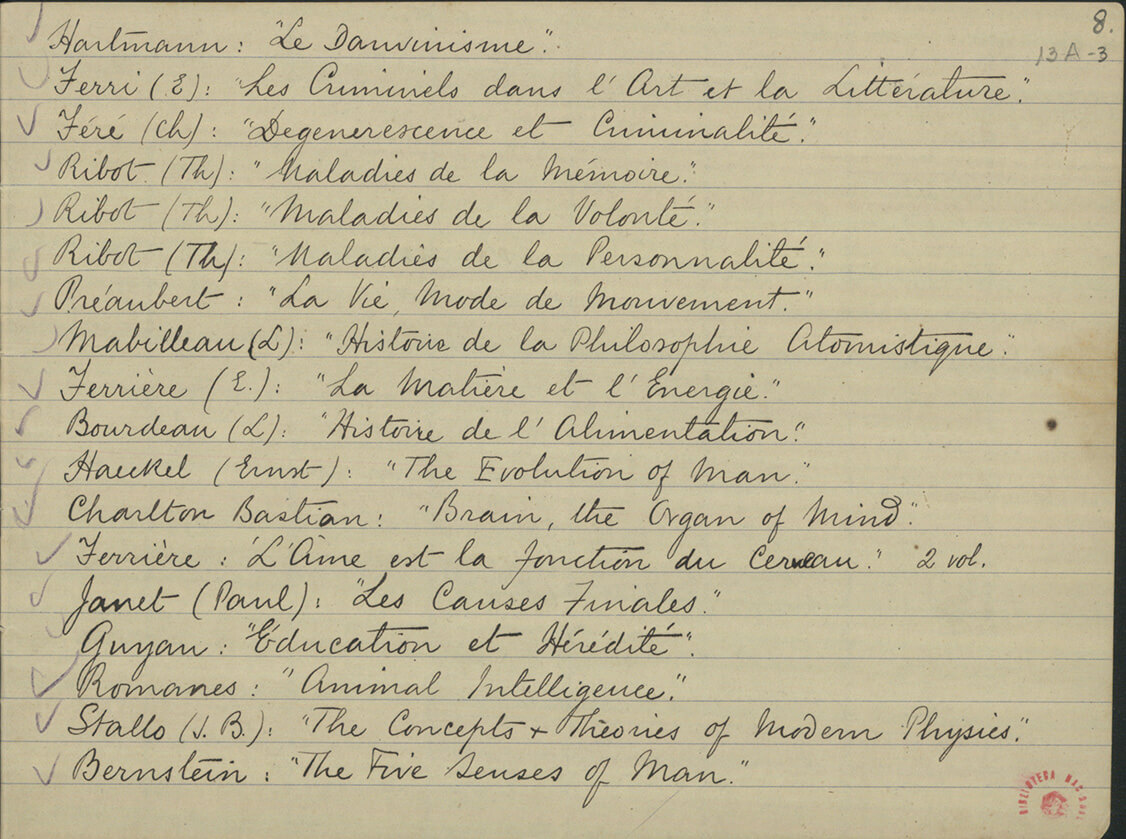 8.
13A-3
Hartmann: "Le Darwinisme".
Ferri (E): "Les Criminels dans l'Art et la Littérature".
Féré (Ch): "Dégénérescence et Criminalité."
Ribot (Th): "Maladies de la Mémoire."
Ribot (Th): "Maladies de la Volonté."
Ribot (Th): "Maladies de la Personnalité."
Préaubert: "La Vie, Mode de Mouvement."
Mabilleau (L): "Histoire de la Philosophie Atomistique."
Ferrière (E.): "La Matière et l'Énergie."
Bourdeau (L): "Histoire de l'Alimentation."
Haeckel (Ernst): "The Evolution of Man."
Charlton Bastian: "Brain, the Organ of Mind".
Ferrière: "L'Âme est la fonction du Cerveau." 2 vol.
Janet (Paul): "Les Causes Finales."
Guyau: "Éducation et Hérédité".
Romanes: "Animal Intelligence."
Stallo (J. B.): "The Concepts + Theories of Modern Physics."
Bernstein: "The Five Senses of Man."
BIBLIOTECA NAC